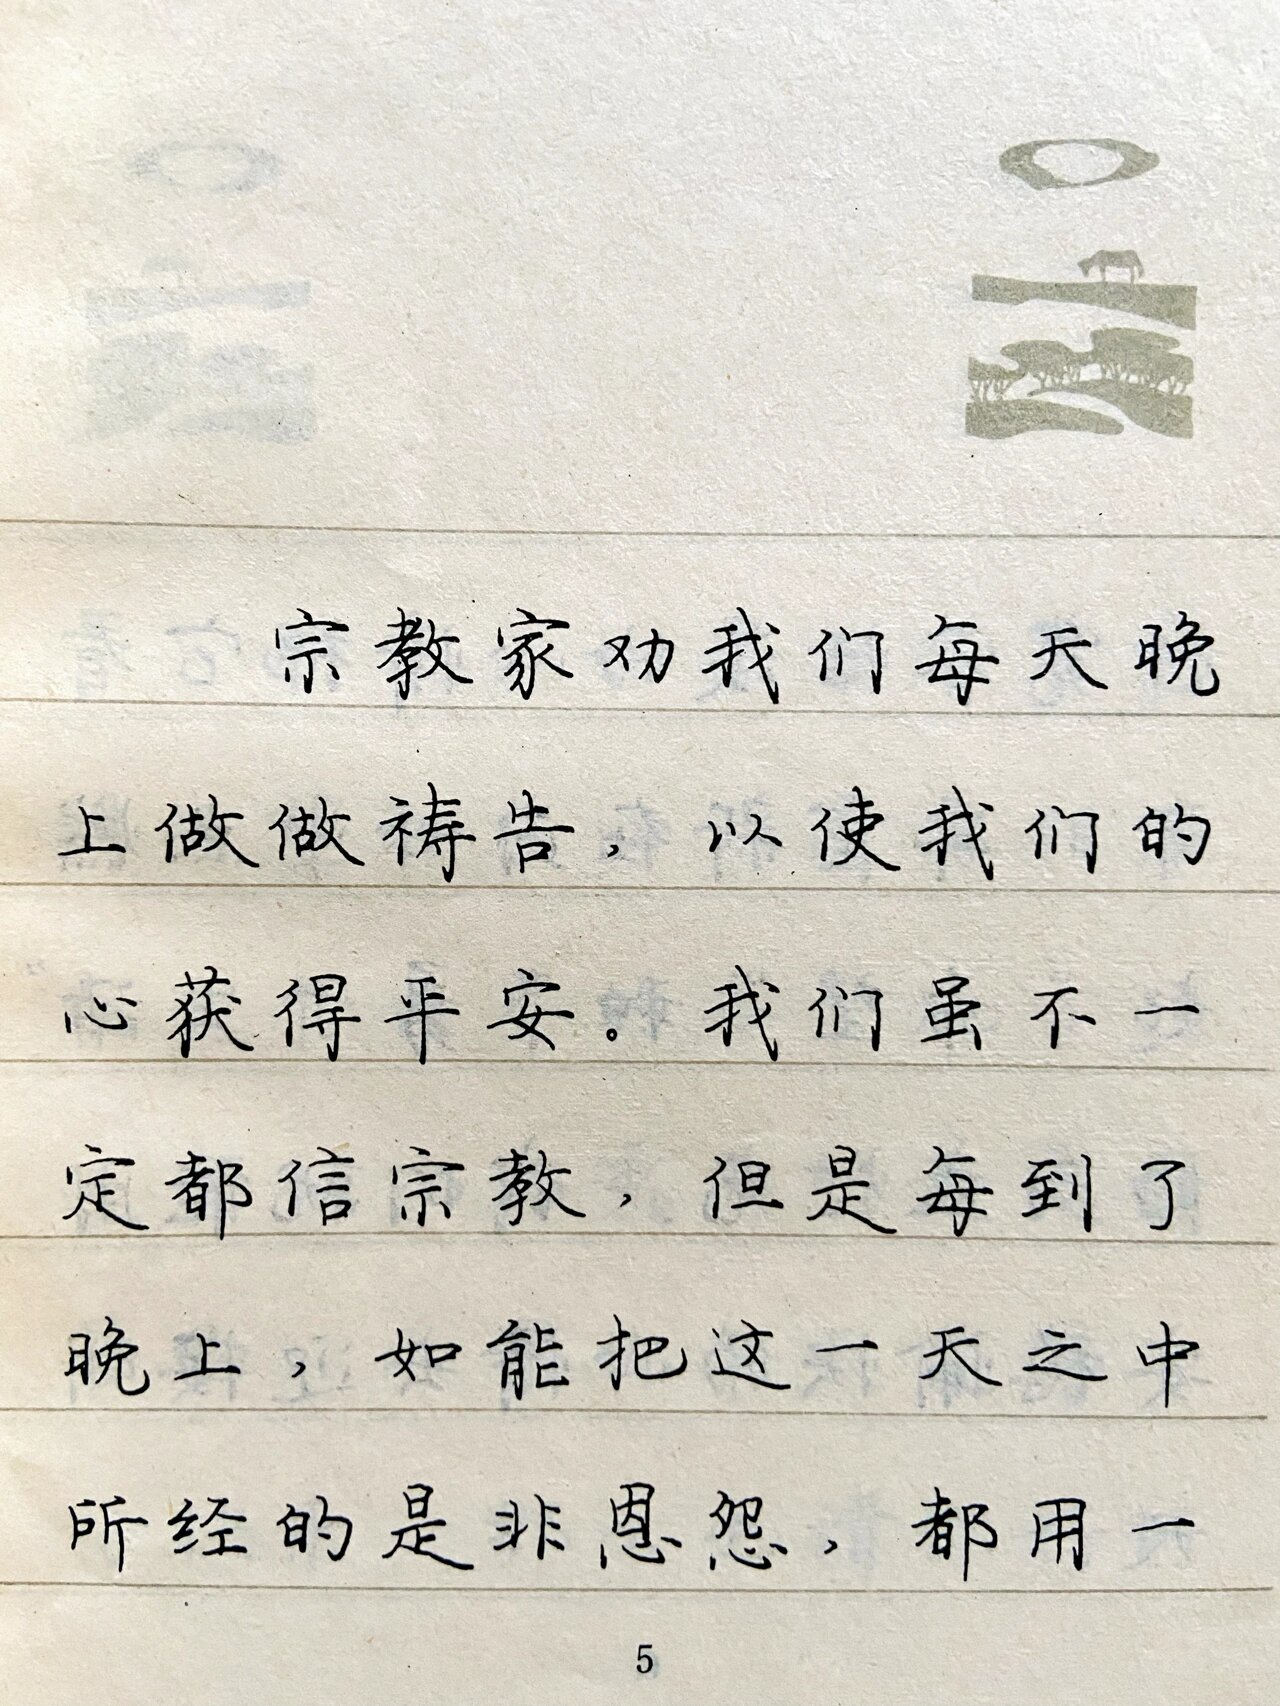 宗教家劝我们每天晚
上做做祷告，以使我们的
心获得平安。我们虽不一
定都信宗教，但是每到了
晚上，如能把这一天之中
所经的是非恩怨，都用一
5